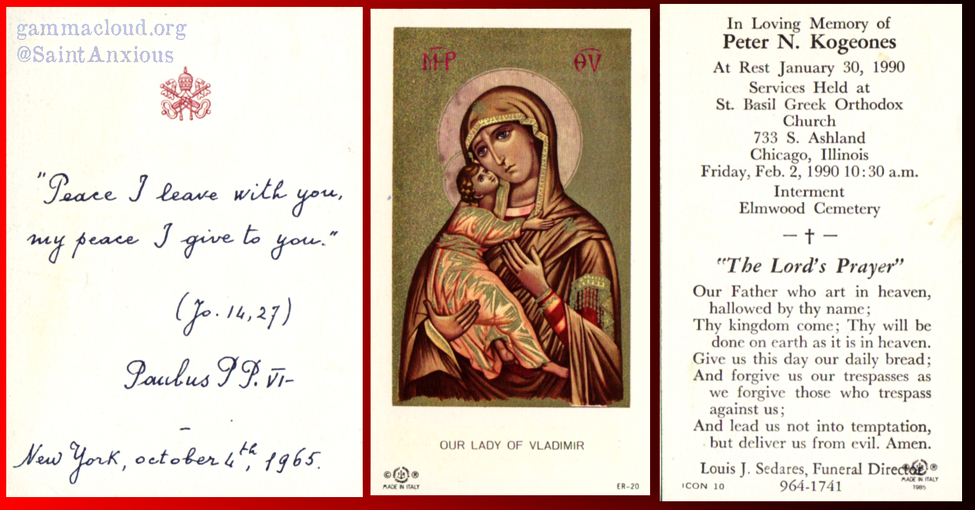 gammacloud.org
@SaintAnxious
"Peace I leave with you,
my peace I give to you."
(Jo. 14, 27)
Paulus PP. VI-
New York, october 4th, 1965.
ΜΡ
ΘΥ
OUR LADY OF VLADIMIR
MADE IN ITALY
ER-20
In Loving Memory of
Peter N. Kogeones
At Rest January 30, 1990
Services Held at
St. Basil Greek Orthodox
Church
733 S. Ashland
Chicago, Illinois
Friday, Feb. 2, 1990 10:30 a.m.
Interment
Elmwood Cemetery
— † —
"The Lord's Prayer"
Our Father who art in heaven,
hallowed by thy name;
Thy kingdom come; Thy will be
done on earth as it is in heaven.
Give us this day our daily bread;
And forgive us our trespasses as
we forgive those who trespass
against us;
And lead us not into temptation,
but deliver us from evil. Amen.
Louis J. Sedares, Funeral Director
ICON 10
964-1741
MADE IN ITALY
1985